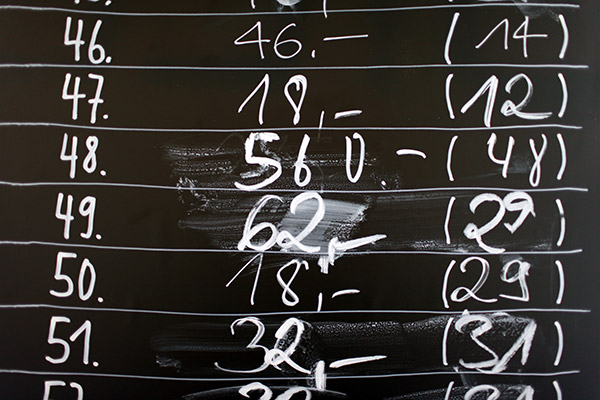 46. 46.– (14)
47. 18,– (12)
48. 560.– (48)
49. 62,– (29)
50. 18,– (29)
51. 32,– (31)